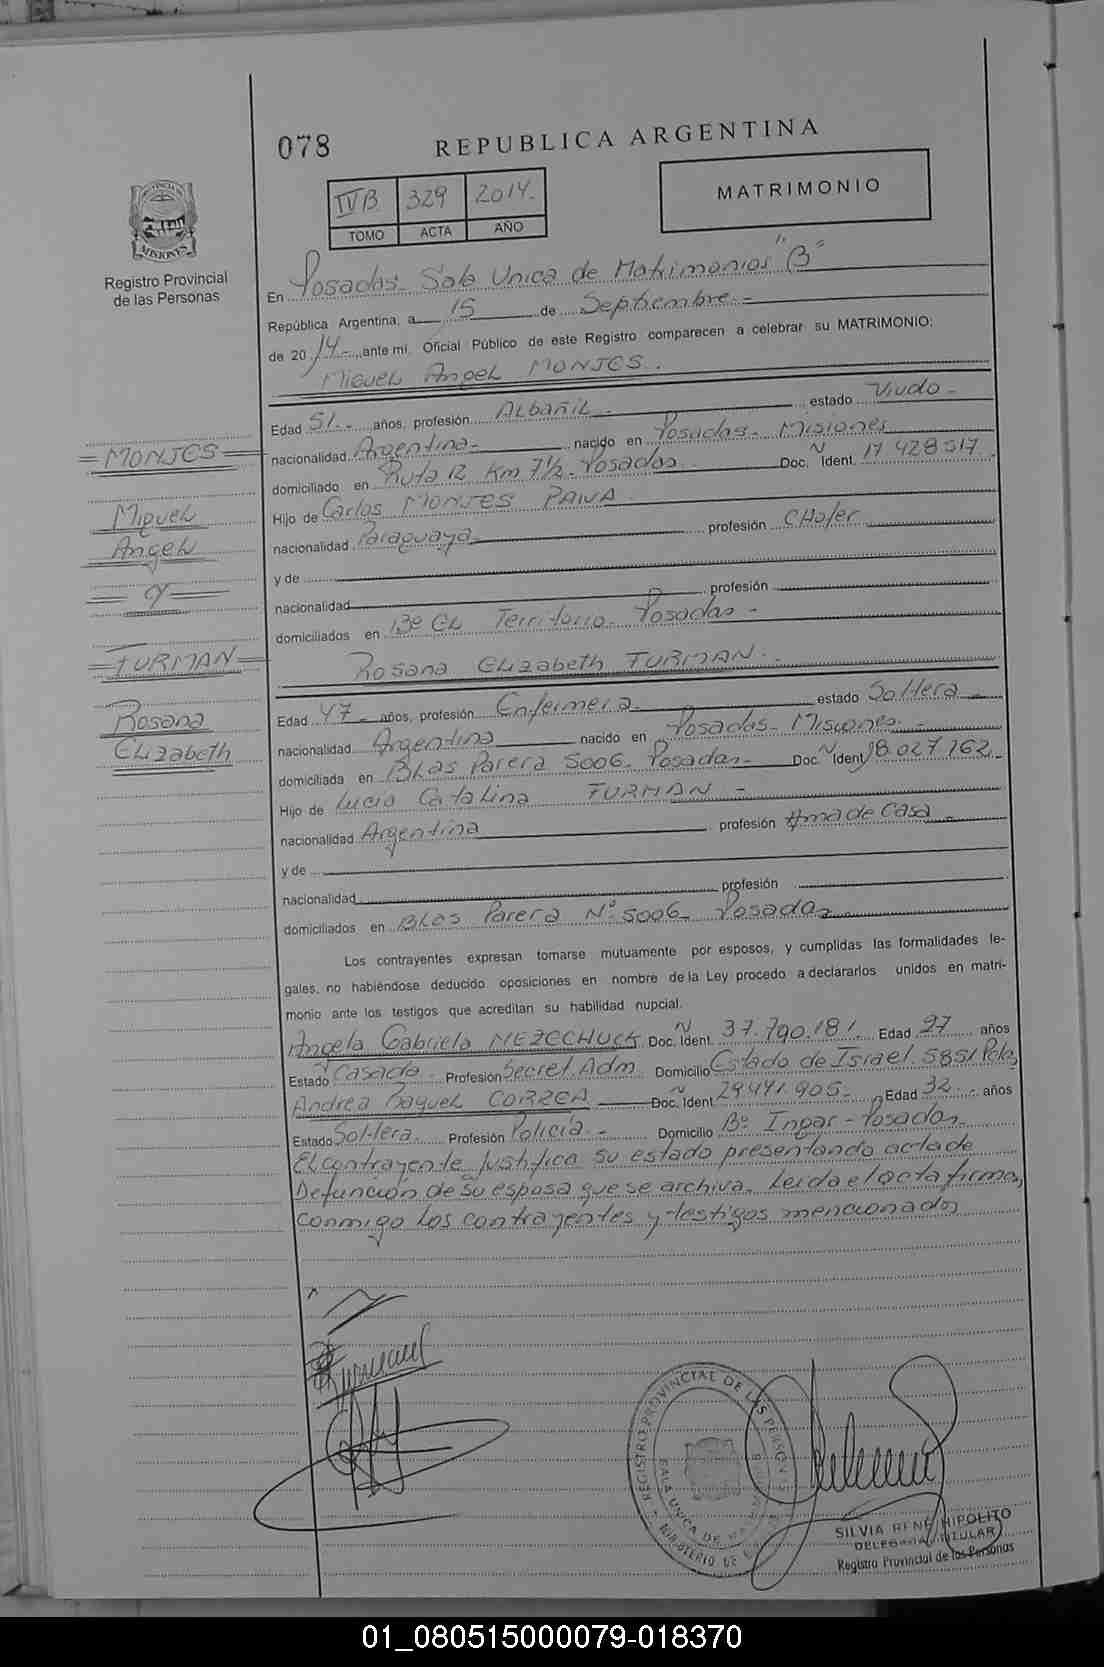 078
REPUBLICA ARGENTINA
MATRIMONIO
IVB 329 2014.
TOMO ACTA AÑO
PROVINCIA DE MISIONES
Registro Provincial
de las Personas
En Posadas- Sala Unica de Matrimonios "B"
República Argentina, a 15 de Septiembre.-
de 2014-, ante mí, Oficial Público de este Registro comparecen a celebrar su MATRIMONIO:
Miguel Angel MONJES.
Edad 51.- años, profesión Albañil- estado Viudo-
nacionalidad Argentina- nacido en Posadas- Misiones
domiciliado en Ruta 12 Km 7½- Posadas Doc. N Ident. 17 428 517
Hijo de Carlos MONJES PAIVA
nacionalidad Paraguaya profesión CHofer
y de
nacionalidad profesión
domiciliados en Bº EL Territorio- Posadas-
Rosana Elizabeth FURMAN-
Edad 47- años, profesión Enfermera- estado Soltera-
nacionalidad Argentina nacido en Posadas- Misiones-
domiciliada en BLas Parera 5006- Posadas- Doc. N Ident 18.027.262-
Hijo de Lucia Catalina FURMAN-
nacionalidad Argentina profesión Ama de Casa-
y de
nacionalidad profesión
domiciliados en BLas Parera Nº 5006- Posadas
Los contrayentes expresan tomarse mutuamente por esposos, y cumplidas las formalidades le-
gales, no habiéndose deducido oposiciones en nombre de la Ley procedo a declararlos unidos en matri-
monio ante los testigos que acreditan su habilidad nupcial.
Angela Gabriela MEZECHUCK Doc. N Ident. 37.790.181. Edad 27 años
Estado Casada- Profesión Secret. Adm. Domicilio Estado de Israel. 5851 Pdas
Andrea Raquel CORREA Doc. N Ident 29.441.905- Edad 32- años
Estado Soltera. Profesión Policía.- Domicilio Bº Inpar- Posadas-
El contrayente Justifica su estado presentando acta de
Defunción de su esposa que se archiva. Leida el acta firman
conmigo los contrayentes y testigos mencionados
MONJES
Miguel
Angel
y
FURMAN
Rosana
Elizabeth
REGISTRO PROVINCIAL DE LAS PERSONAS
SALA UNICA DE
MINISTERIO DE
SILVIA RENE HIPOLITO
DELEGADA TITULAR
Registro Provincial de las Personas
01_080515000079-018370